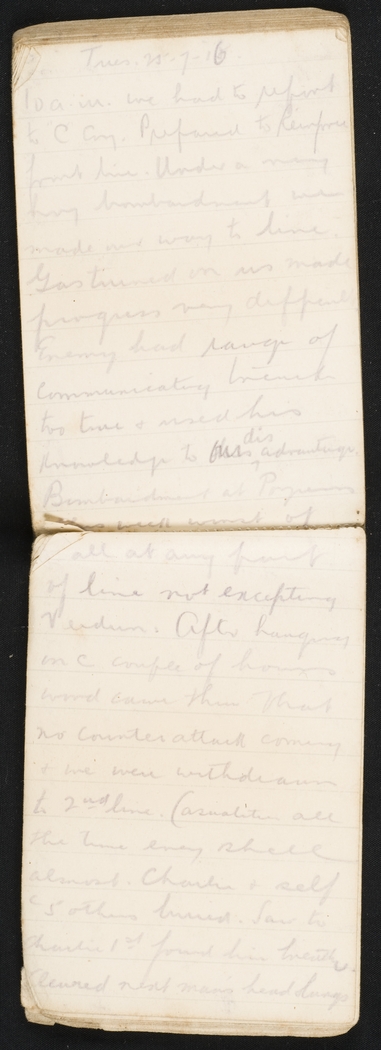 Tues. 25-7-16
10 a.m. we had to report
to C Coy. Prepared to Reinforce
front line. Under a very
heavy bombardment we
made our way to line.
Gas turned on us made
progress very difficult
Enemy had range of
communicating trench
too true & used his
knowledge to our dis advantage.
Bombardment at Pozieres
was well worst of
all at any part
of line not excepting
Verdun. After hanging
on a couple of hours
word came thru that
no counter attack coming
& we were withdrawn
to 2nd line. Casualities all
the time every shell
almost. Charlie & self
& 5 others buried. Saw to
Charlie 1st found his breath
Cleared next mans head lungs